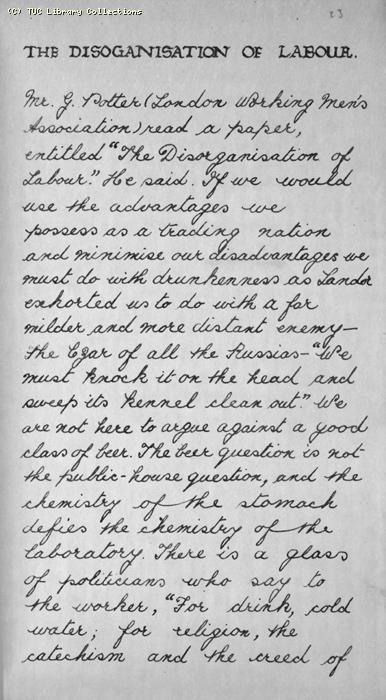 (C) TUC Library Collections
23
THE DISOGANISATION OF LABOUR.
Mr. G. Potter (London Working Men's
Association) read a paper,
entitled "The Disorganisation of
Labour." He said. If we would
use the advantages we
possess as a trading nation
and minimise our disadvantages we
must do with drunkenness as Landor
exhorted us to do with a far
milder and more distant enemy—
the Czar of all the Russias—"We
must knock it on the head and
sweep its kennel clean out." We
are not here to argue against a good
class of beer. The beer question is not
the public-house question, and the
chemistry of the stomach
defies the chemistry of the
laboratory. There is a glass
of politicians who say to
the worker, "For drink, cold
water; for religion, the
catechism and the creed of